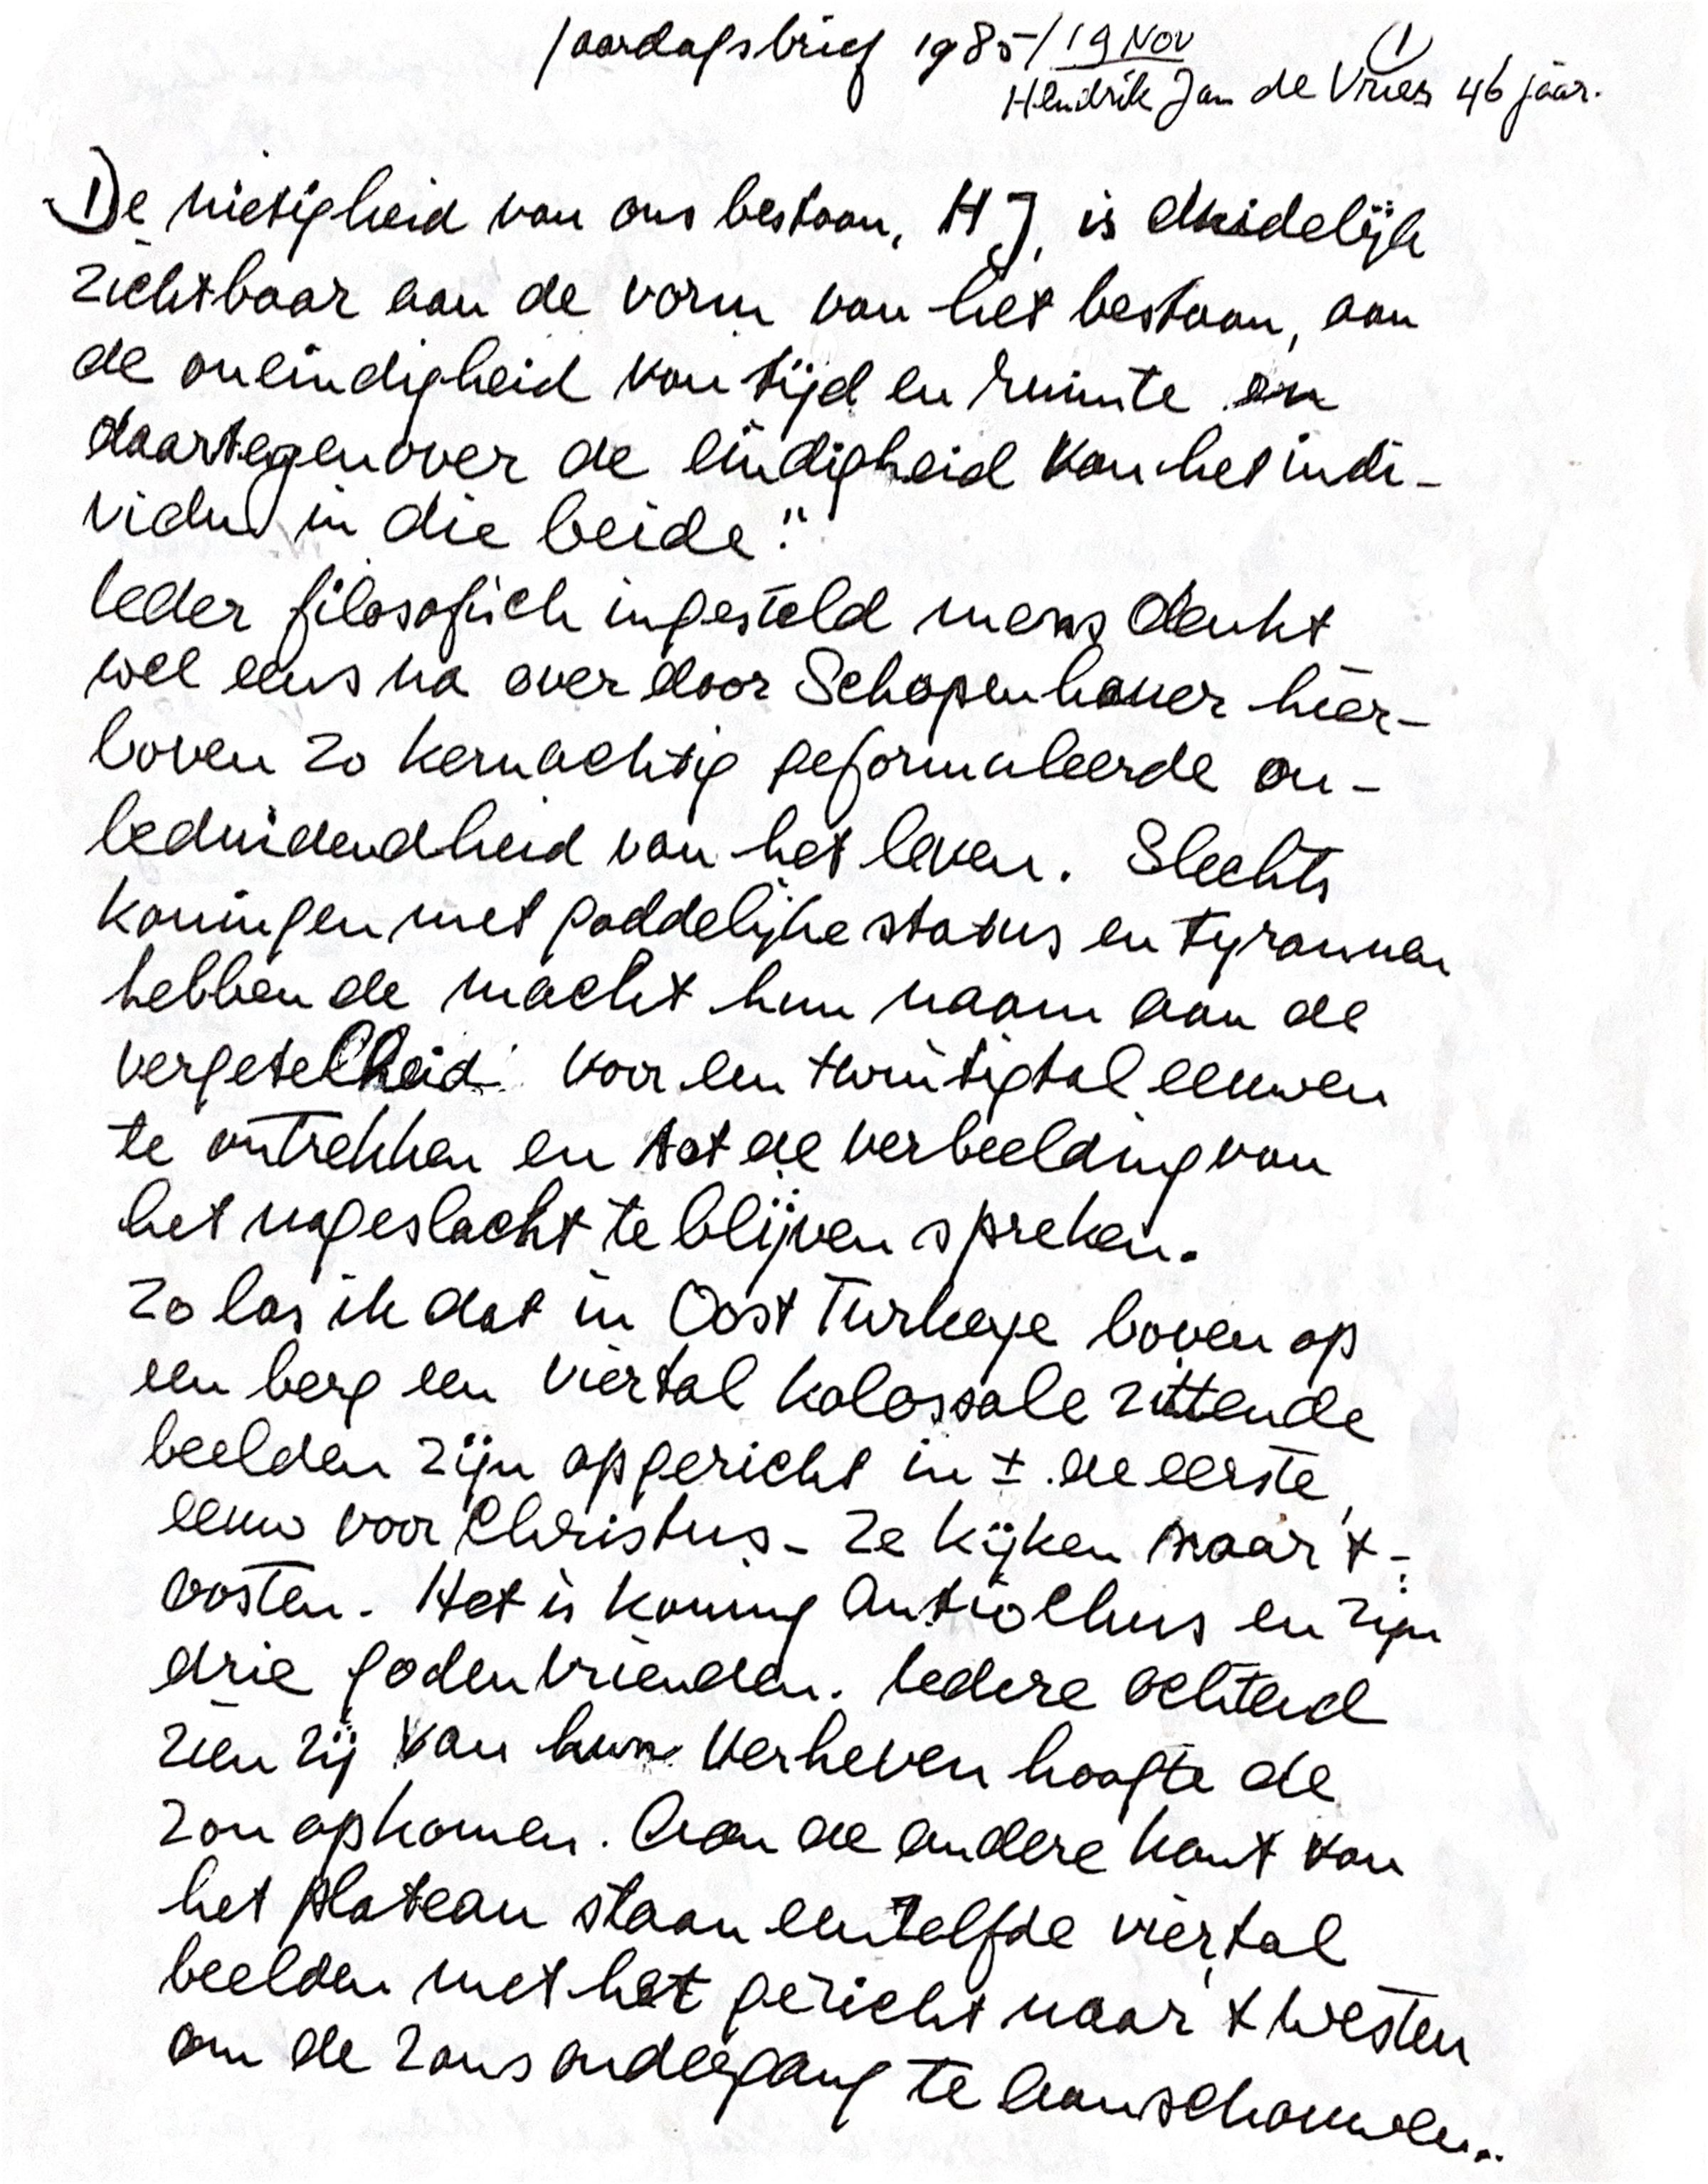 Jaardagsbrief 1985/19 Nov (1)
Hendrik Jan de Vries 46 jaar.
1) De nietigheid van ons bestaan, HJ, is duidelijk
zichtbaar aan de vorm van het bestaan, aan
de oneindigheid van tijd en ruimte en
daartegenover de eindigheid van het indi-
vidu in die beide."
Ieder filosofisch ingesteld mens denkt
wel eens na over door Schopenhauer hier-
boven zo kernachtig geformuleerde on-
beduidendheid van het leven. Slechts
koningen met goddelijke status en tyrannen
hebben de macht hun naam aan de
vergetelheid voor een twintigtal eeuwen
te onttrekken en tot de verbeelding van
het nageslacht te blijven spreken.
Zo las ik dat in Oost Turkeye boven op
een berg een viertal kolossale zittende
beelden zijn opgericht in ± de eerste
eeuw voor Christus - ze kijken naar 't -
oosten. Het is koning Antiochus en zijn
drie godenvrienden. Iedere ochtend
zien zij van hun verheven hoogte de
zon opkomen. Aan de andere kant van
het plateau staan eenzelfde viertal
beelden met het gericht naar 't westen
om de zonsondergang te aanschouwen..